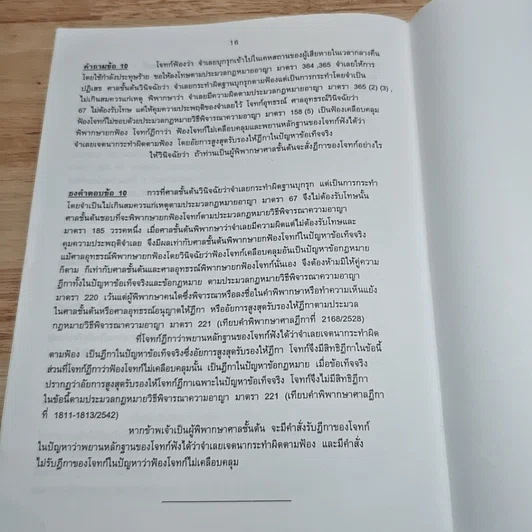 16
คำถามข้อ 10 โจทก์ฟ้องว่า จำเลยบุกรุกเข้าไปในเคหสถานของผู้เสียหายในเวลากลางคืน
โดยใช้กำลังประทุษร้าย ขอให้ลงโทษตามประมวลกฎหมายอาญา มาตรา 364 ,365 จำเลยให้การ
ปฏิเสธ ศาลชั้นต้นวินิจฉัยว่า จำเลยกระทำผิดฐานบุกรุกตามฟ้องแต่เป็นการกระทำโดยจำเป็น
ไม่เกินสมควรแก่เหตุ พิพากษาว่า จำเลยมีความผิดตามประมวลกฎหมายอาญา มาตรา 365 (2) (3) ,
67 ไม่ต้องรับโทษ แต่ให้คุมความประพฤติของจำเลยไว้ โจทก์อุทธรณ์ ศาลอุทธรณ์วินิจฉัยว่า
ฟ้องโจทก์ไม่ชอบด้วยประมวลกฎหมายวิธีพิจารณาความอาญา มาตรา 158 (5) เป็นฟ้องเคลือบคลุม
พิพากษายกฟ้อง โจทก์ฎีกาว่า ฟ้องโจทก์ไม่เคลือบคลุมและพยานหลักฐานของโจทก์ฟังได้ว่า
จำเลยเจตนากระทำผิดตามฟ้อง โดยอัยการสูงสุดรับรองให้ฎีกาในปัญหาข้อเท็จจริง
ให้วินิจฉัยว่า ถ้าท่านเป็นผู้พิพากษาศาลชั้นต้นจะสั่งฎีกาของโจทก์อย่างไร
ธงคำตอบข้อ 10 การที่ศาลชั้นต้นวินิจฉัยว่าจำเลยกระทำผิดฐานบุกรุก แต่เป็นการกระทำ
โดยจำเป็นไม่เกินสมควรแก่เหตุตามประมวลกฎหมายอาญา มาตรา 67 จึงไม่ต้องรับโทษนั้น
ศาลชั้นต้นชอบที่จะพิพากษายกฟ้องโจทก์ตามประมวลกฎหมายวิธีพิจารณาความอาญา
มาตรา 185 วรรคหนึ่ง เมื่อศาลชั้นต้นพิพากษาว่าจำเลยมีความผิดแต่ไม่ต้องรับโทษและ
คุมความประพฤติจำเลย จึงมีผลเท่ากับศาลชั้นต้นพิพากษายกฟ้องโจทก์ในปัญหาข้อเท็จจริง
แม้ศาลอุทธรณ์พิพากษายกฟ้องโดยวินิจฉัยว่าฟ้องโจทก์เคลือบคลุมอันเป็นปัญหาข้อกฎหมาย
ก็ตาม ก็เท่ากับศาลชั้นต้นและศาลอุทธรณ์พิพากษายกฟ้องโจทก์นั่นเอง จึงต้องห้ามมิให้คู่ความ
ฎีกาทั้งในปัญหาข้อเท็จจริงและข้อกฎหมาย ตามประมวลกฎหมายวิธีพิจารณาความอาญา
มาตรา 220 เว้นแต่ผู้พิพากษาคนใดซึ่งพิจารณาหรือลงชื่อในคำพิพากษาหรือทำความเห็นแย้ง
ในศาลชั้นต้นหรือศาลอุทธรณ์อนุญาตให้ฎีกา หรืออัยการสูงสุดรับรองให้ฎีกาตามประมวล
กฎหมายวิธีพิจารณาความอาญา มาตรา 221 (เทียบคำพิพากษาฎีกาที่ 2168/2528)
ที่โจทก์ฎีกาว่าพยานหลักฐานของโจทก์ฟังได้ว่าจำเลยเจตนากระทำผิด
ตามฟ้อง เป็นฎีกาในปัญหาข้อเท็จจริงซึ่งอัยการสูงสุดรับรองให้ฎีกา โจทก์จึงมีสิทธิฎีกาในข้อนี้
ส่วนที่โจทก์ฎีกาว่าฟ้องโจทก์ไม่เคลือบคลุมนั้น เป็นฎีกาในปัญหาข้อกฎหมาย เมื่อข้อเท็จจริง
ปรากฏว่าอัยการสูงสุดรับรองให้โจทก์ฎีกาเฉพาะในปัญหาข้อเท็จจริง โจทก์จึงไม่มีสิทธิฎีกา
ในข้อนี้ตามประมวลกฎหมายวิธีพิจารณาความอาญา มาตรา 221 (เทียบคำพิพากษาศาลฎีกา
ที่ 1811-1813/2542)
หากข้าพเจ้าเป็นผู้พิพากษาศาลชั้นต้น จะมีคำสั่งรับฎีกาของโจทก์
ในปัญหาว่าพยานหลักฐานของโจทก์ฟังได้ว่าจำเลยเจตนากระทำผิดตามฟ้อง และมีคำสั่ง
ไม่รับฎีกาของโจทก์ในปัญหาว่าฟ้องโจทก์ไม่เคลือบคลุม